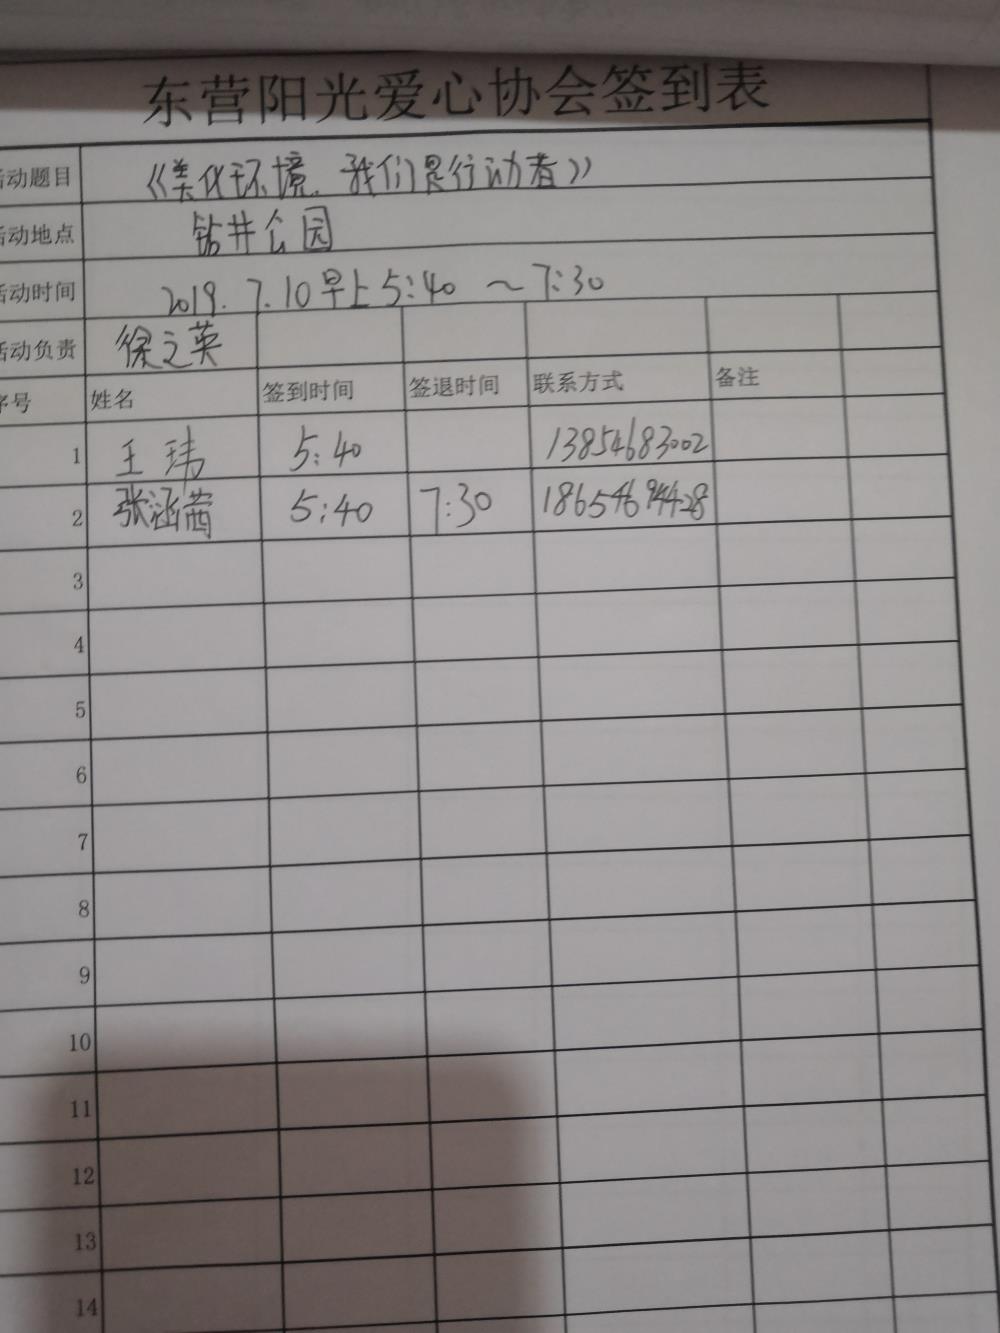 东营阳光爱心协会签到表
活动题目 《美化环境.我们是行动者》
活动地点 钻井公园
活动时间 2019.7.10早上5:40~7:30
活动负责 徐之英
序号 姓名 签到时间 签退时间 联系方式 备注
1 王玮 5:40 13854683002
2 张涵茜 5:40 7:30 18654694428
3
4
5
6
7
8
9
10
11
12
13
14